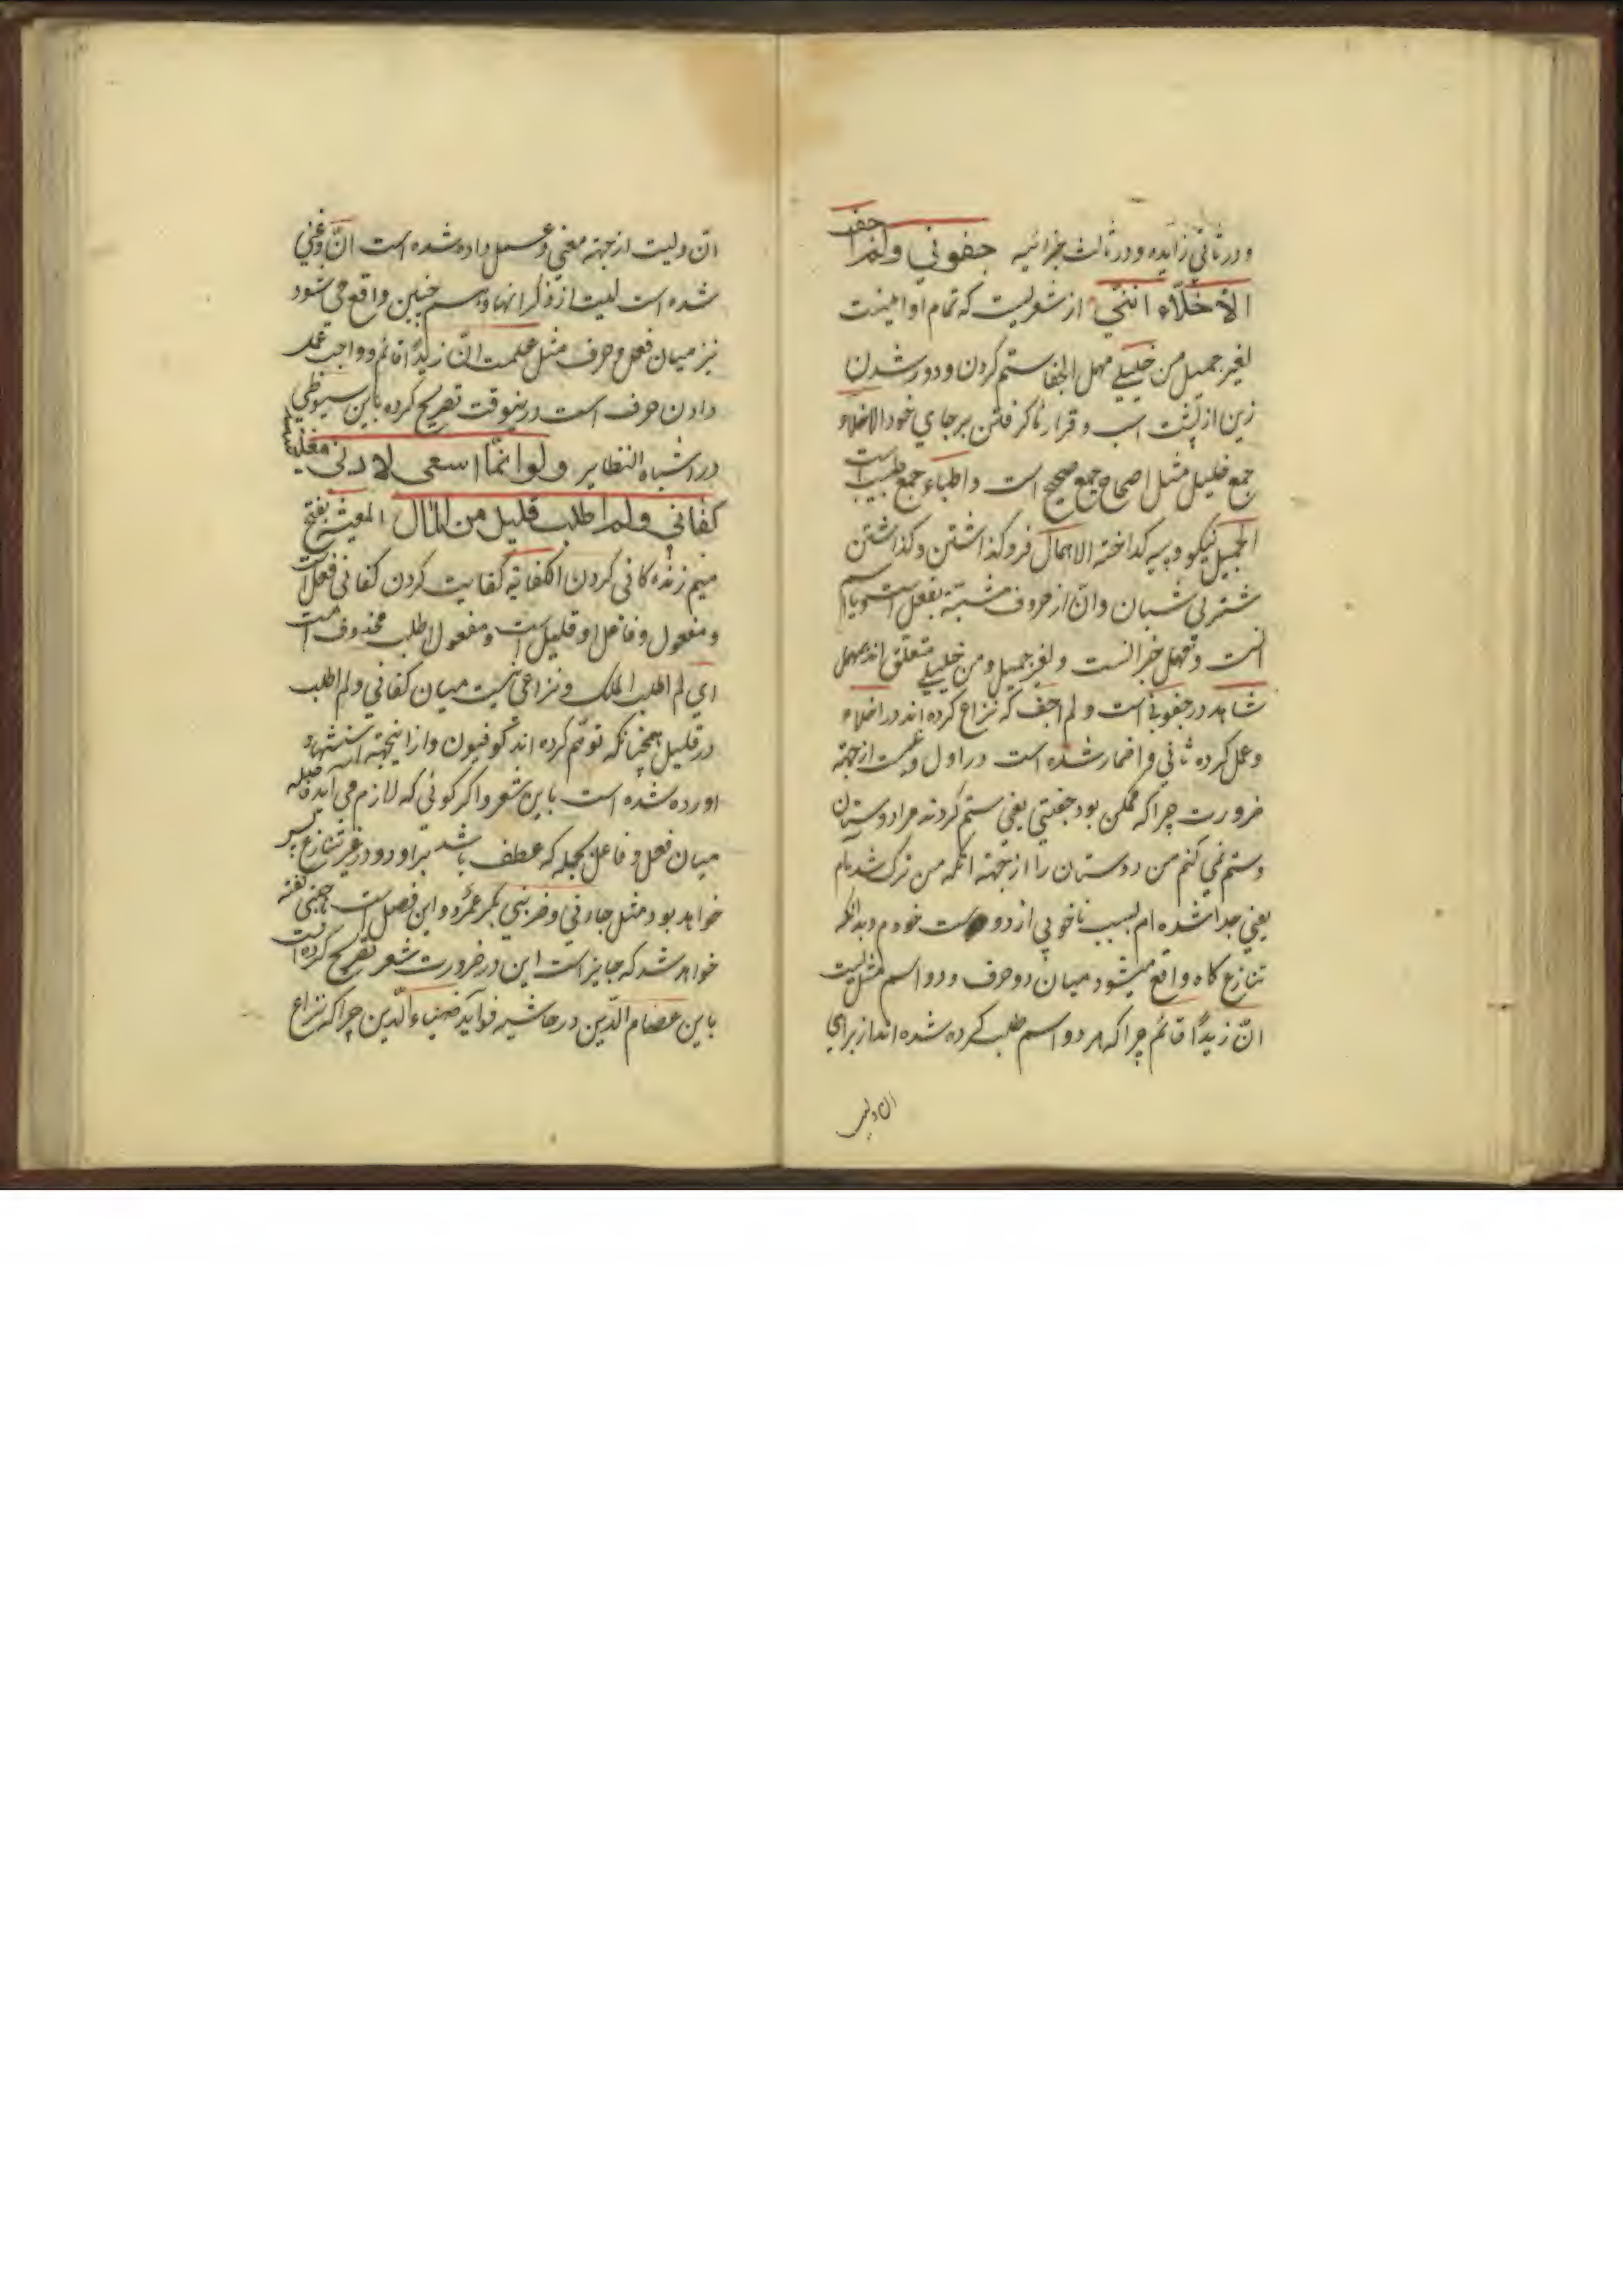 ودر ثانی زایده ودر ثالث جزائیه جفونی ولم اجف
الاخلّاء انّنی از شعریست که تمام او اینست
لغیر جمیل من خلیلی مهمل الجفا ستم کردن و دور شدن
زین از پشت اسب و قرار ناکرفتن بر جای خود الاخلاء
جمع خلیل مثل اصحاح جمع صحیح است و اطباء جمع طبیب است
الجمیل نیکو و پیه کداخته الاهمال فروکذاشتن و کذاشتن
شتر بی شبان وانّ از حروف مشبّهة بفعل است و یا اسم
انست و مهمل خبر انست و لغیر جمیل و من خلیلی متعلق اند بمهمل
شاهد در جفونی است و لم اجف که نزاع کرده اند در اخلاء
وعمل کرده ثانی و اضمار شده است در اول از جهة
ضرورت چراکه ممکن بود جفتنی یعنی ستم کردند مرا دوستان
وستم نمی کنم من دوستان را از جهة انکه من ترک شده ام
یعنی جدا شده ام بسبب ناخوبی از دوست خودم و بدانکه
تنازع کاه واقع میشود میان دو حرف و دو اسم مثل لیت
انّ زیدًا قائم چراکه هر دو اسم طلب کرده شده اند از برای
ان ولیت
انّ ولیت از جهة معنی و عمل داده شده است انّ و غنی
شده است لیت از ذکر انها و هم چنین واقع می شود
نیز میان فعل و حرف مثل علمت انّ زیدًا قائم و واجب عمل
دادن حرف است درینوقت تصریح کرده باین سیوطی
در اشباه النظایر ولو انّما اسعی لادنی معیشة
کفانی ولم اطلب قلیل من المال المعیشة بفتح
میم زنده کانی کردن الکفایة کفایت کردن کفانی فعل است
و مفعول و فاعل او قلیل است و مفعول لم اطلب محذوف است
ای لم اطلب الملک و نزاعی نیست میان کفانی ولم اطلب
در قلیل همچنانکه توهّم کرده اند کوفیون و از اینجهة استشهاد
اورده شده است باین شعر و اکر کوئی که لازم می آید فاصله
میان فعل و فاعل بجمله که عطف باشد براو و در غیر تنازع پس
خواهد بود مثل جاءنی و ضربنی بکر عمرٌو و این فصل است باجنبی کفته
خواهد شد که جایز است این در ضرورت شعر تصریح کرده است
باین عصام الدّین در حاشیه فواید ضیاء الدّین چراکه نزاع